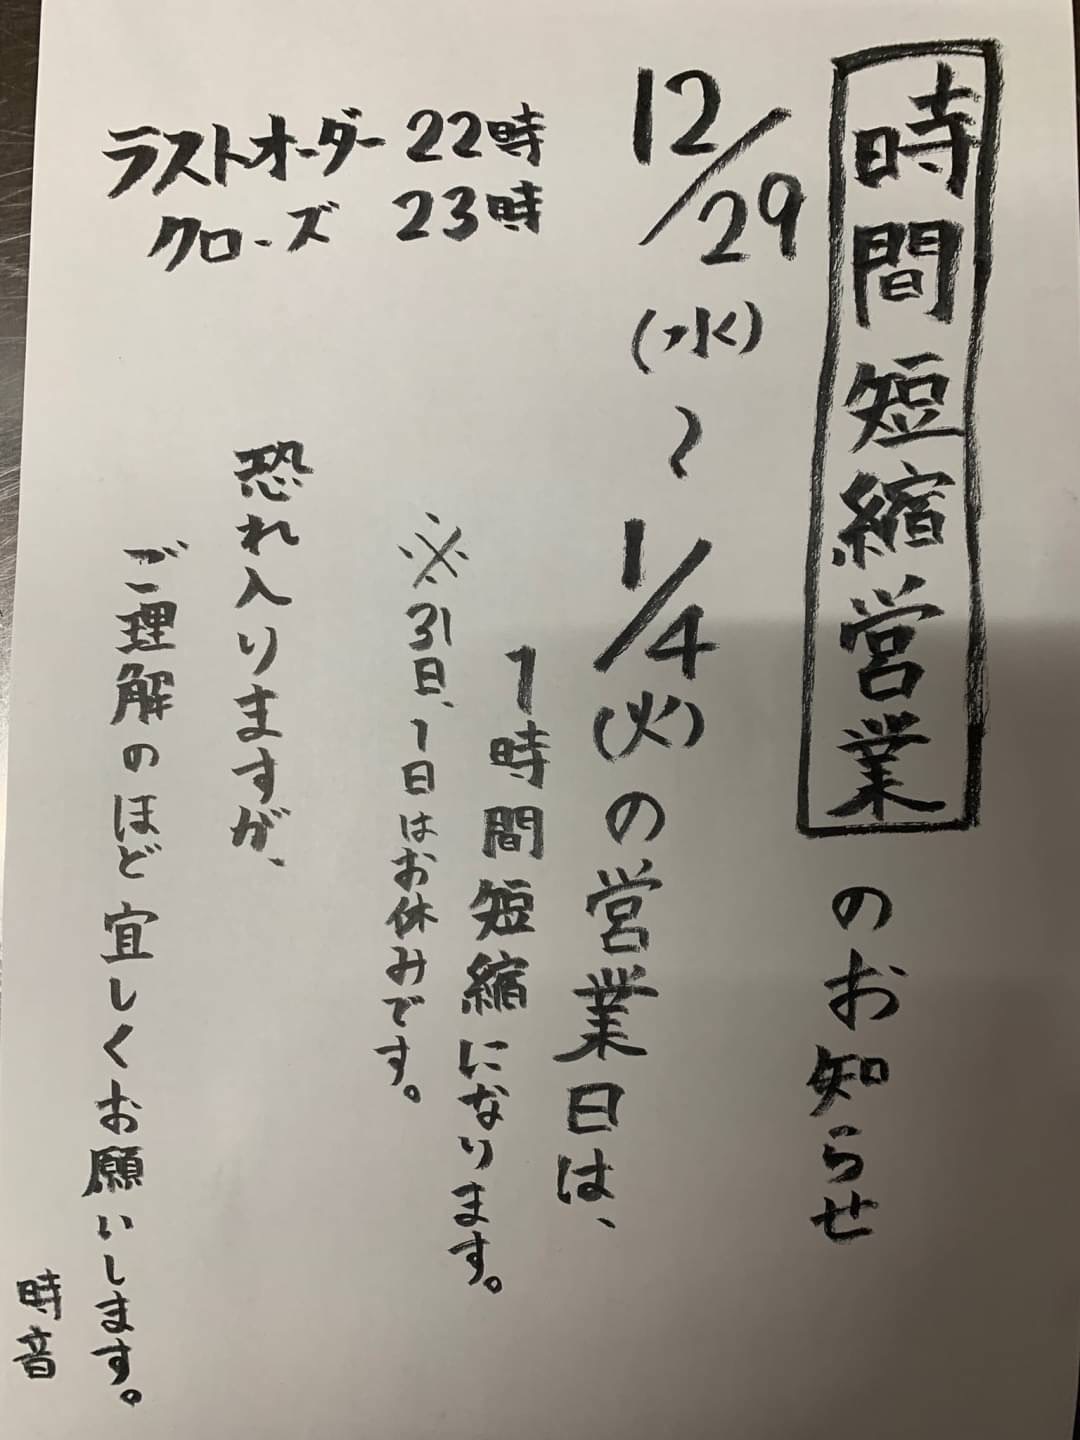 時間短縮営業のお知らせ
12/29(水)～1/4(火)の営業日は、
1時間短縮になります。
ラストオーダー 22時
クローズ 23時
※31日、1日はお休みです。
恐れ入りますが、
ご理解のほど宜しくお願いします。
時音